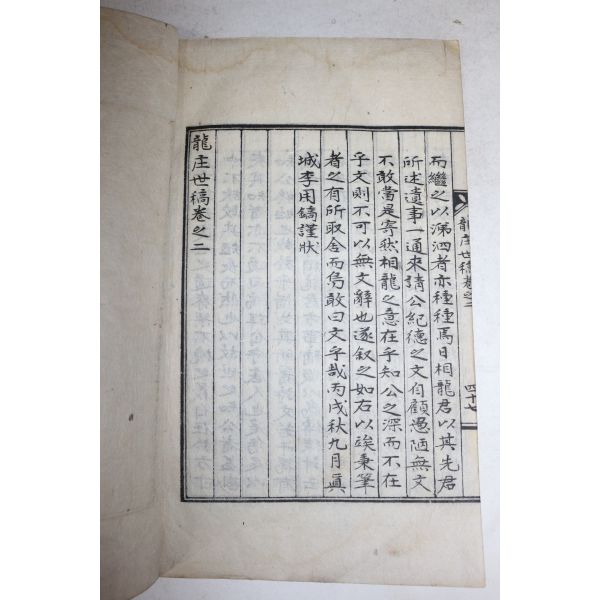 龍庄世稿卷之二
四十七
而繼之以涕泗者亦種種焉日相龍君以其先君
所述遺事一通來請公紀德之文自顧愚陋無文
不敢當是寄然相龍之意在乎知公之深而不在
乎文則不可以無文辭也遂叙之如右以竢秉筆
者之有所取舍而焉敢曰文乎哉丙戌秋九月眞
城李用鎬謹狀
龍庄世稿卷之二